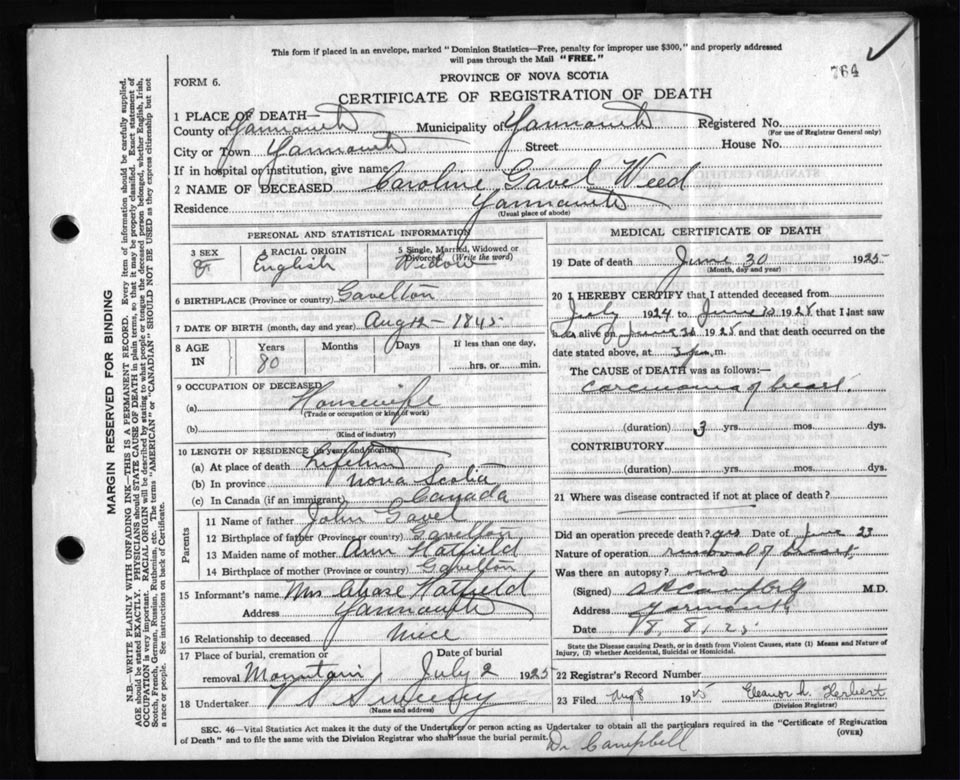 This form if placed in an envelope, marked "Dominion Statistics—Free, penalty for improper use $300," and properly addressed
will pass through the Mail "FREE."
764
FORM 6.
PROVINCE OF NOVA SCOTIA
CERTIFICATE OF REGISTRATION OF DEATH
1 PLACE OF DEATH—
County of Yarmouth Municipality of Yarmouth Registered No.
(For use of Registrar General only)
City or Town Yarmouth Street House No.
If in hospital or institution, give name
2 NAME OF DECEASED Caroline Gavel Weed
Residence Yarmouth
(Usual place of abode)
PERSONAL AND STATISTICAL INFORMATION
3 SEX 4 RACIAL ORIGIN 5 Single, Married, Widowed or
Divorced (Write the word)
English Widow
6 BIRTHPLACE (Province or country) Gavelton
7 DATE OF BIRTH (month, day and year) Aug 12 - 1845
8 AGE IN Years Months Days If less than one day,
80 hrs. or min.
9 OCCUPATION OF DECEASED
(a) Housewife
(Trade or occupation or kind of work)
(b)
(Kind of industry)
10 LENGTH OF RESIDENCE (in years and months)
(a) At place of death Lifetime
(b) In province Nova Scotia
(c) In Canada (if an immigrant) Canada
Parents
11 Name of father John Gavel
12 Birthplace of father (Province or country) Gavelton
13 Maiden name of mother Ann Hatfield
14 Birthplace of mother (Province or country) Gavelton
15 Informant's name Mrs Chase Hatfield
Address Yarmouth
16 Relationship to deceased niece
17 Place of burial, cremation or Date of burial
removal Mountain July 2 1925
18 Undertaker V S Sweeny
(Name and address)
MEDICAL CERTIFICATE OF DEATH
19 Date of death June 30 1925
(Month, day and year)
20 I HEREBY CERTIFY that I attended deceased from
July 1924 to June 1925 that I last saw
alive on June 1925 and that death occurred on
date stated above, at 3 m.
The CAUSE of DEATH was as follows:—
carcinoma of breast
(duration) 3 yrs. mos. dys.
CONTRIBUTORY
(duration) yrs. mos. dys.
21 Where was disease contracted if not at place of death?
Did an operation precede death? yes Date of June 23
Nature of operation removal of breast
Was there an autopsy? no
(Signed) Campbell M.D.
Address Yarmouth
Date 8, 25
State the Disease causing Death, or in death from Violent Causes, state (1) Means and Nature of
Injury, (2) whether Accidental, Suicidal or Homicidal.
22 Registrar's Record Number
23 Filed Aug 8 1925 Eleanor L. Herbert
(Division Registrar)
SEC. 46—Vital Statistics Act makes it the duty of the Undertaker or person acting as Undertaker to obtain all the particulars required in the "Certificate of Registration
of Death" and to file the same with the Division Registrar who shall issue the burial permit.
(OVER)
Dr Campbell
MARGIN RESERVED FOR BINDING
N.B.—WRITE PLAINLY WITH UNFADING INK—THIS IS A PERMANENT RECORD. Every item of information should be carefully supplied.
AGE should be stated EXACTLY. PHYSICIANS should STATE CAUSE OF DEATH in plain terms, so that it may be properly classified. Exact statement of
OCCUPATION is very important. RACIAL ORIGIN will be described by stating to what people or tongue the deceased person belonged, whether English, Irish,
Scotch, French, German, Russian, Ruthenian, etc. The terms "AMERICAN" or "CANADIAN" SHOULD NOT BE USED as they express citizenship but not
a race or people. See instructions on back of Certificate.